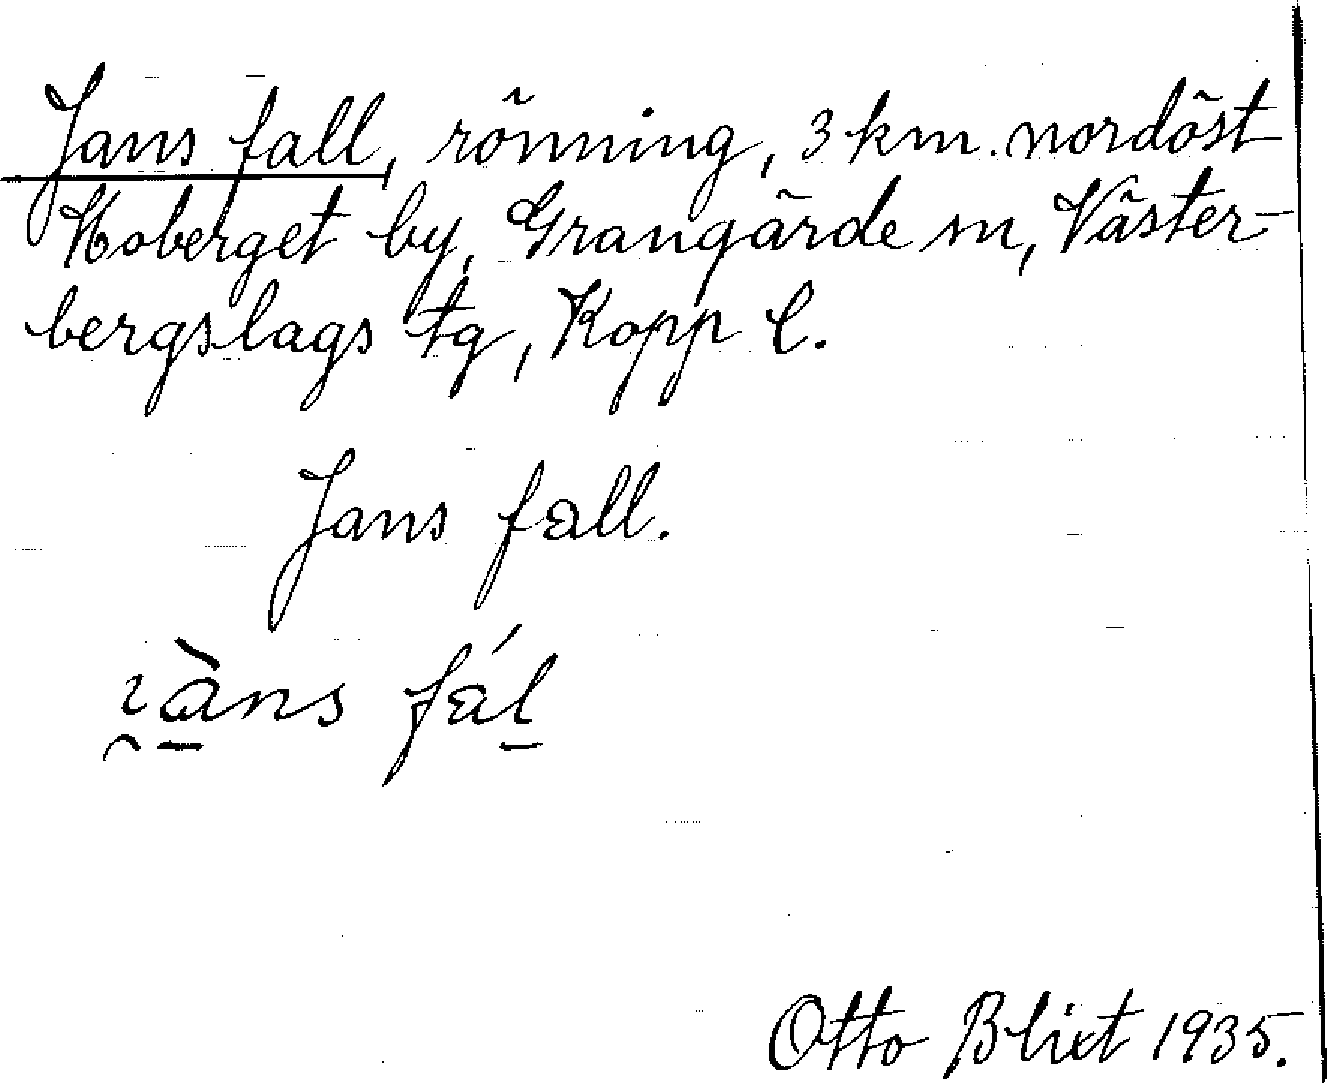 Jans fall, rönning, 3 km. nordöst
Hoberget by, Grangärde sn, Väster-
bergslags tg, Kopp l.
Jans fall.
ı̯à̱ns fáḻ
Otto Blixt 1935.